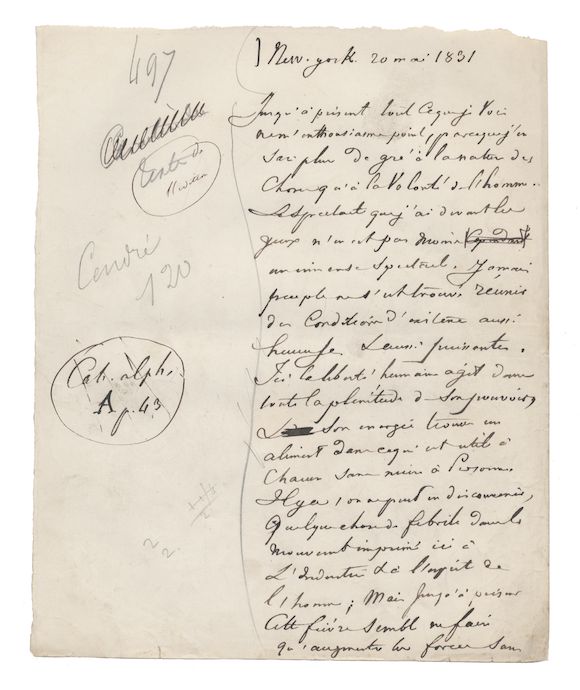 497
New-york 20 mai 1831
Jusqu'à présent tout ce que je vois
ne m'enthousiasme point, parceque j'en
sais plus de gré à la nature des
choses qu'à la volonté de l'homme.
Le spectacle que j'ai devant les
yeux n'en est pas moins
un immense spectacle. Jamais
peuple ne s'est trouvé réunir
des conditions d'existence aussi
heureuses & aussi puissantes.
Ici la liberté humaine agit dans
toute la plénitude de son pouvoir,
son energie trouve un
aliment dans ce qui est utile à
chacun sans nuire à Personne.
Il y a, on ne peut en disconvenir,
quelque chose de fébrile dans le
mouvement imprimé ici à
L'industrie & à l'esprit de
l'homme; Mais jusqu'à présent
cette fièvre semble ne faire
qu'augmenter les forces sans
Cendré
120
Cah. alph.
A
p. 43
2
2.